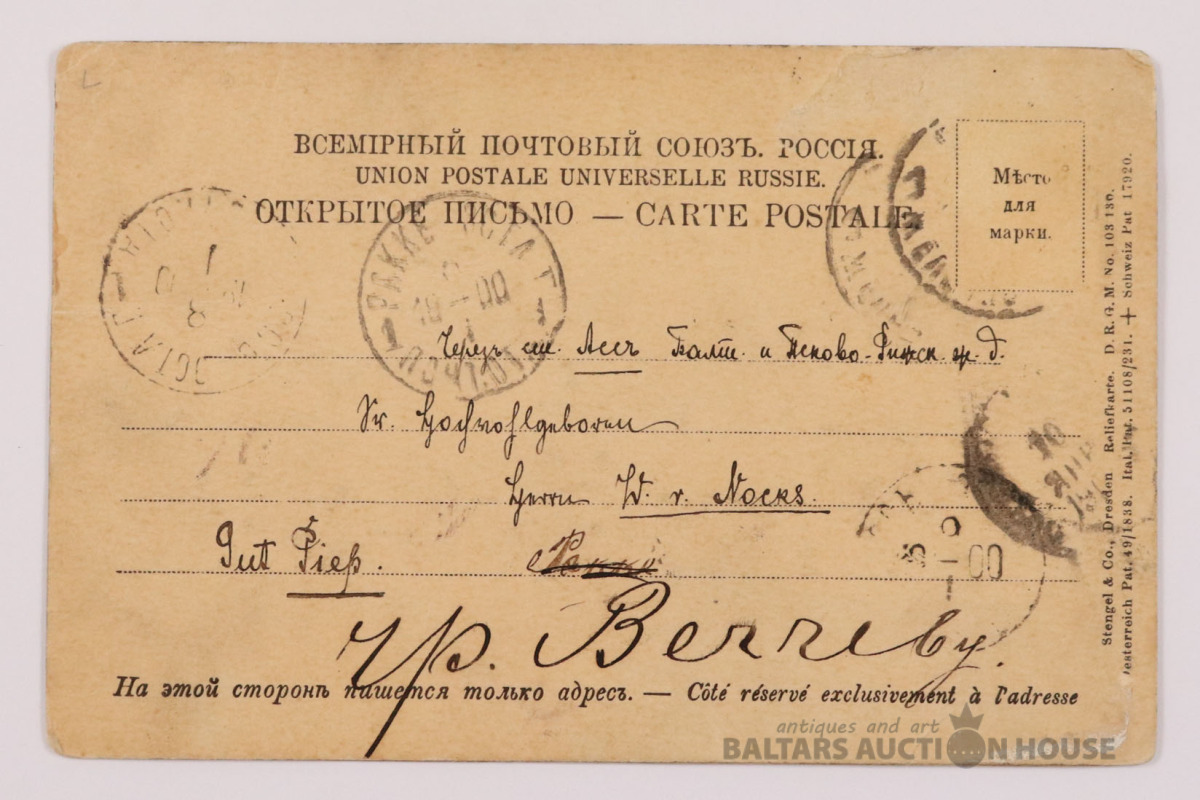 ВСЕМІРНЫЙ ПОЧТОВЫЙ СОЮЗЪ. РОССІЯ.
UNION POSTALE UNIVERSELLE RUSSIE.
ОТКРЫТОЕ ПИСЬМО — CARTE POSTALE.
Мѣсто
для
марки.
PAKKE
18 00
Черезъ ст. Ассъ Балт. и Псково-Рижск. ж. д.
Sr. Hochwohlgeboren
Herrn W. v. Nocks.
Gut Pieß.
00
ч/р. Верреву.
На этой сторонѣ пишется только адресъ. — Côté réservé exclusivement à l'adresse
Stengel & Co., Dresden Reliefkarte. D. R. G. M. No. 103 130.
Oesterreich Pat. 49/1838. Ital. Pat. 51108/231. + Schweiz Pat 17920.
antiques and art
BALTARS AUCTION HOUSE